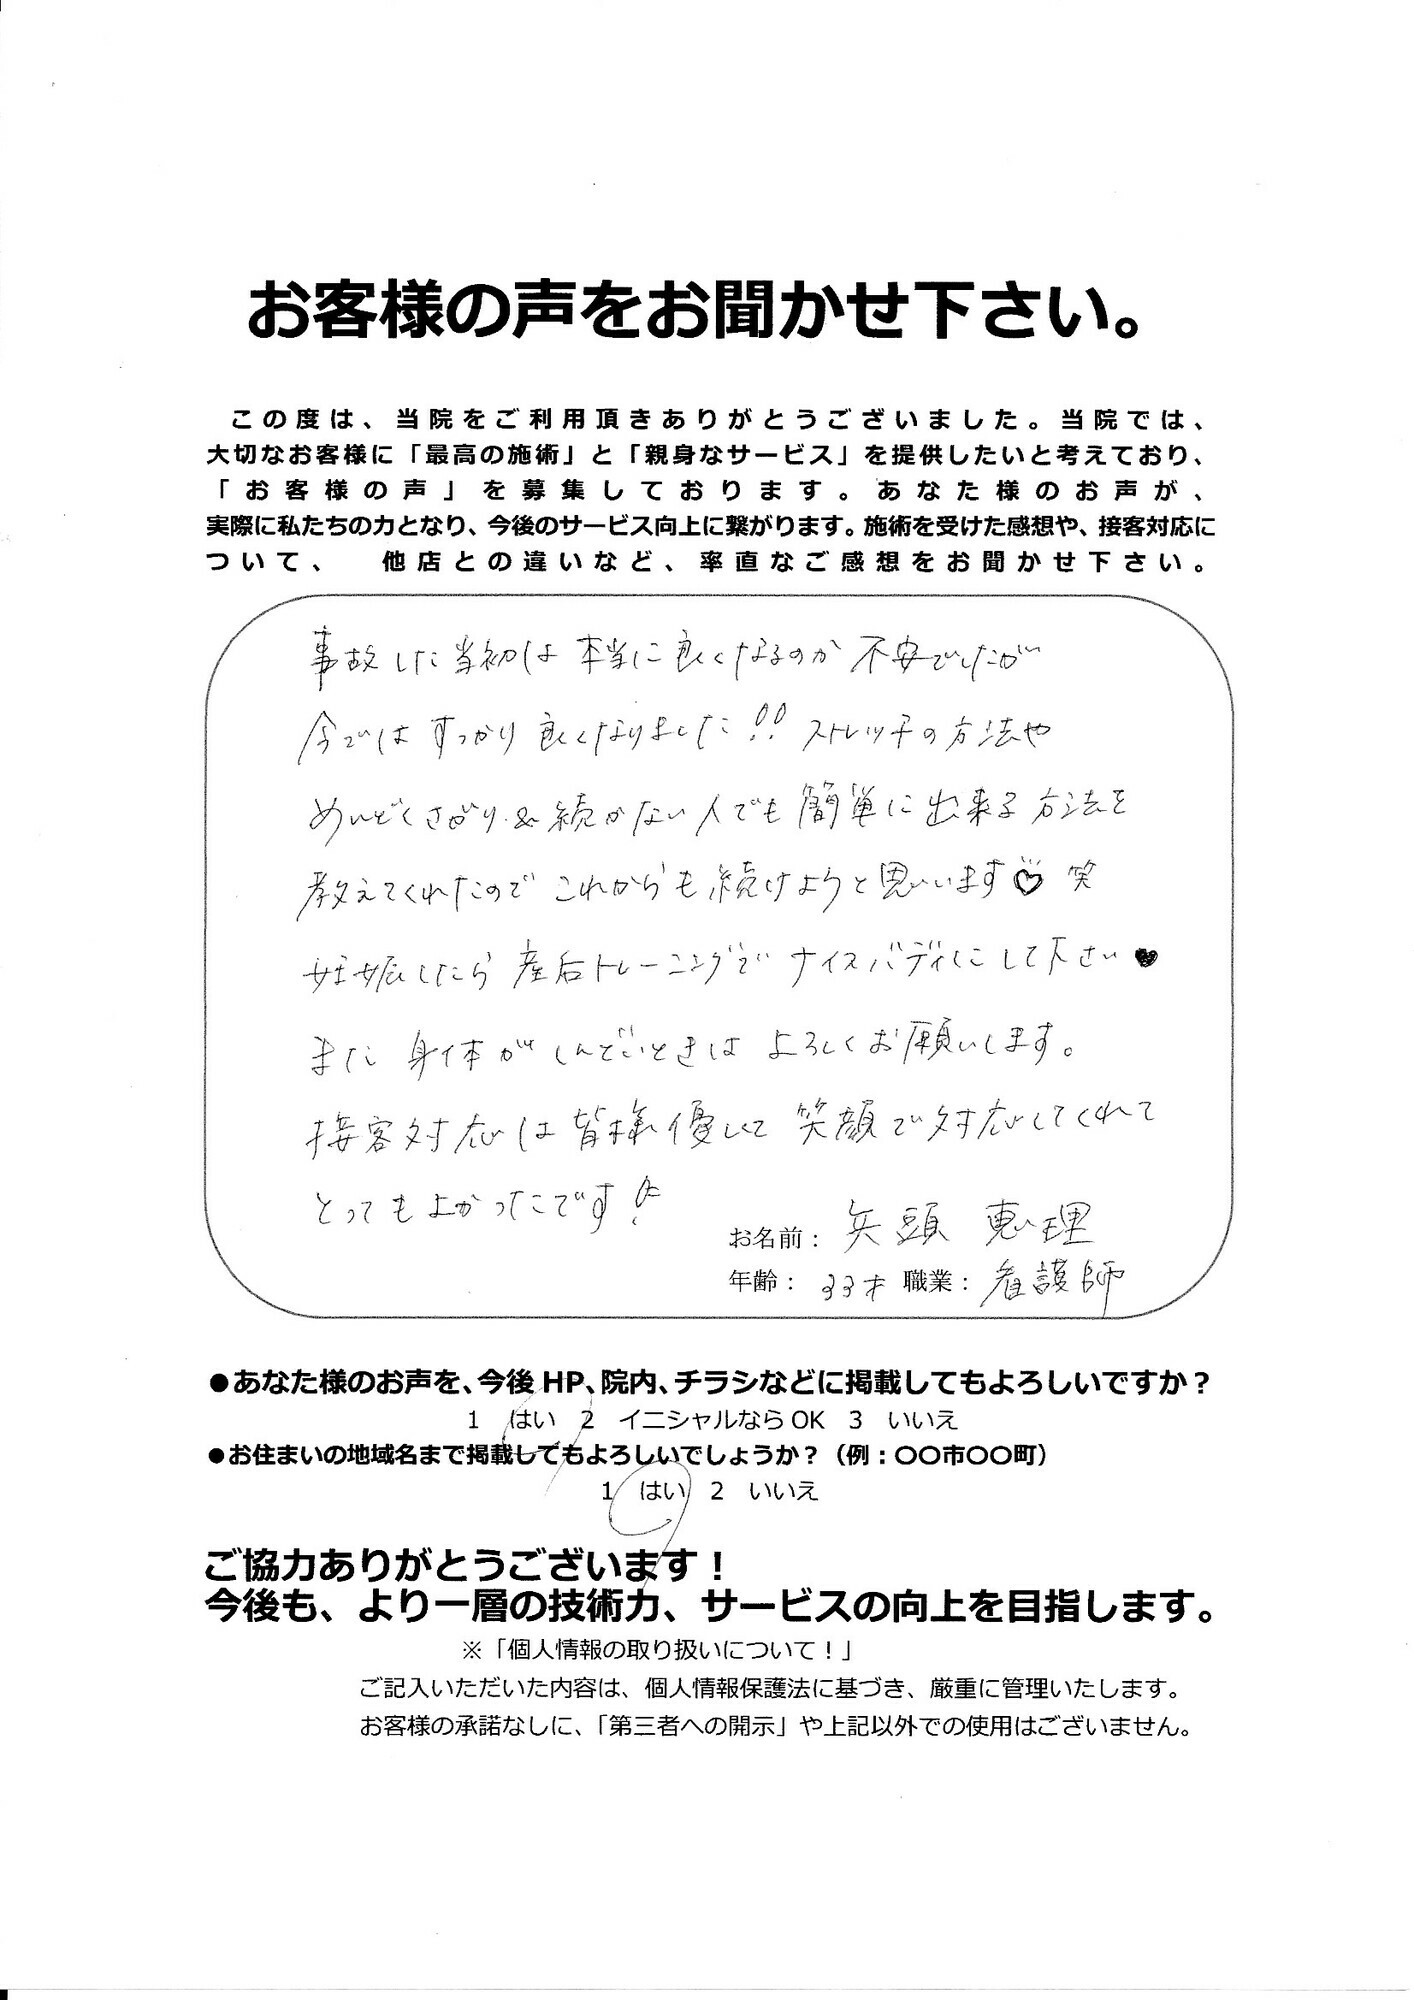 お客様の声をお聞かせ下さい。
この度は、当院をご利用頂きありがとうございました。当院では、
大切なお客様に「最高の施術」と「親身なサービス」を提供したいと考えており、
「お客様の声」を募集しております。あなた様のお声が、
実際に私たちの力となり、今後のサービス向上に繋がります。施術を受けた感想や、接客対応に
ついて、　他店との違いなど、率直なご感想をお聞かせ下さい。
事故した当初は本当に良くなるのか不安でしたが
今ではすっかり良くなりました!! ストレッチの方法や
めんどくさがり&続かない人でも簡単に出来る方法を
教えてくれたのでこれからも続けようと思います♡笑
妊娠したら産后トレーニングでナイスバディにして下さい♥
また身体がしんどいときはよろしくお願いします。
接客対応は皆様優しくて笑顔で対応してくれて
とってもよかったです!
お名前：矢頭 恵理
年齢：33才 職業：看護師
●あなた様のお声を、今後HP、院内、チラシなどに掲載してもよろしいですか？
1　はい　2　イニシャルならOK　3　いいえ
●お住まいの地域名まで掲載してもよろしいでしょうか？（例：〇〇市〇〇町）
1　はい　2　いいえ
ご協力ありがとうございます！
今後も、より一層の技術力、サービスの向上を目指します。
※「個人情報の取り扱いについて！」
ご記入いただいた内容は、個人情報保護法に基づき、厳重に管理いたします。
お客様の承諾なしに、「第三者への開示」や上記以外での使用はございません。